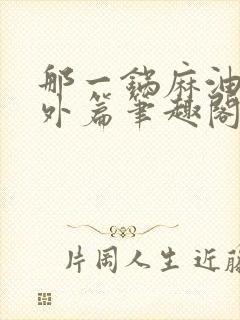 那一锅麻油
外篇笔趣阁
片岡人生近藤